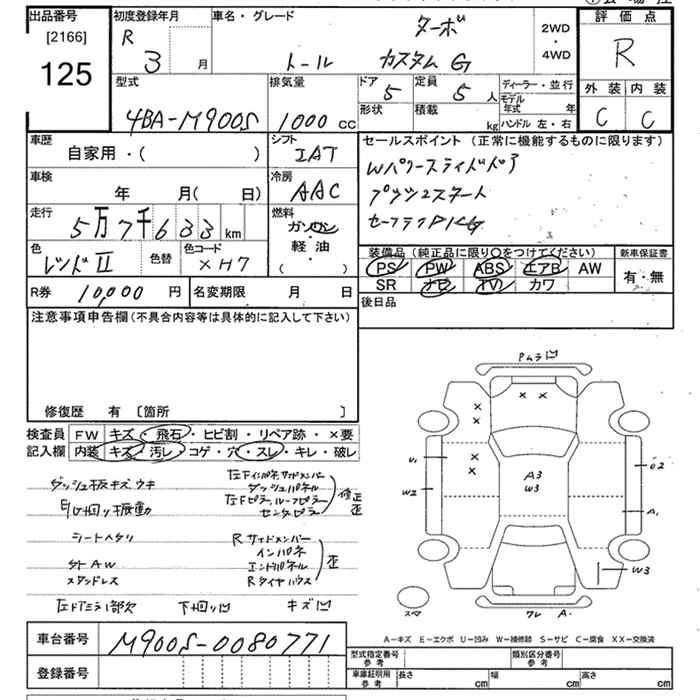 出品番号
[2166]
125
初度登録年月
R
3 月
車名・グレード
ターボ
トール カスタム G
2WD
・
4WD
評価点
R
外装 内装
C C
型式
4BA-M900S
排気量
1000 cc
ドア
5
定員
5 人
形状
積載
kg
ディーラー・並行
モデル
年式 年
ハンドル 左・右
車歴
自家用・( )
シフト
IAT
車検
年 月( 日)
冷房
AAC
走行
5万7千633 km
燃料
ガソリン
軽油
( ・ )
色
色替
色コード
XH7
R券 10,000 円
名変期限 月 日
セールスポイント (正常に機能するものに限ります)
Wパワースライドドア
プッシュスタート
装備品 (純正品に限り○をつけてください)
PS PW ABS エアB AW
SR ナビ TV カワ
新車保証書
有・無
後日品
注意事項申告欄(不具合内容等は具体的に記入して下さい)
修復歴 有 [箇所 ]
検査員
記入欄
FW キズ・飛石・ヒビ割・リペア跡・×要
内装 キズ・汚レ・コゲ・穴・スレ・キレ・破レ
ダッシュ板キズウキ
左Fインパネサイドメンバー
ダッシュパネル
左Fピラ、ルーフピラー
センタピラー
修正
歪
シートヘタリ
外AW
スタッドレス
Rサイドメンバー
インパネ
エンドパネル
Rタイヤハウス
歪
下回り凹
キズ凹
車台番号 M900S-0080771
登録番号
PムラE凹
× ×
×
×
×
×
U1
W2
A3
W3
U2
A1
W3
スペア
ワレ A.
A-キズ E-エクボ U-凹み W-補修跡 S-サビ C-腐食 XX-交換済
型式指定番号
参考
類別区分番号
参考
車庫証明用
参考
長さ cm
幅 cm
高さ cm